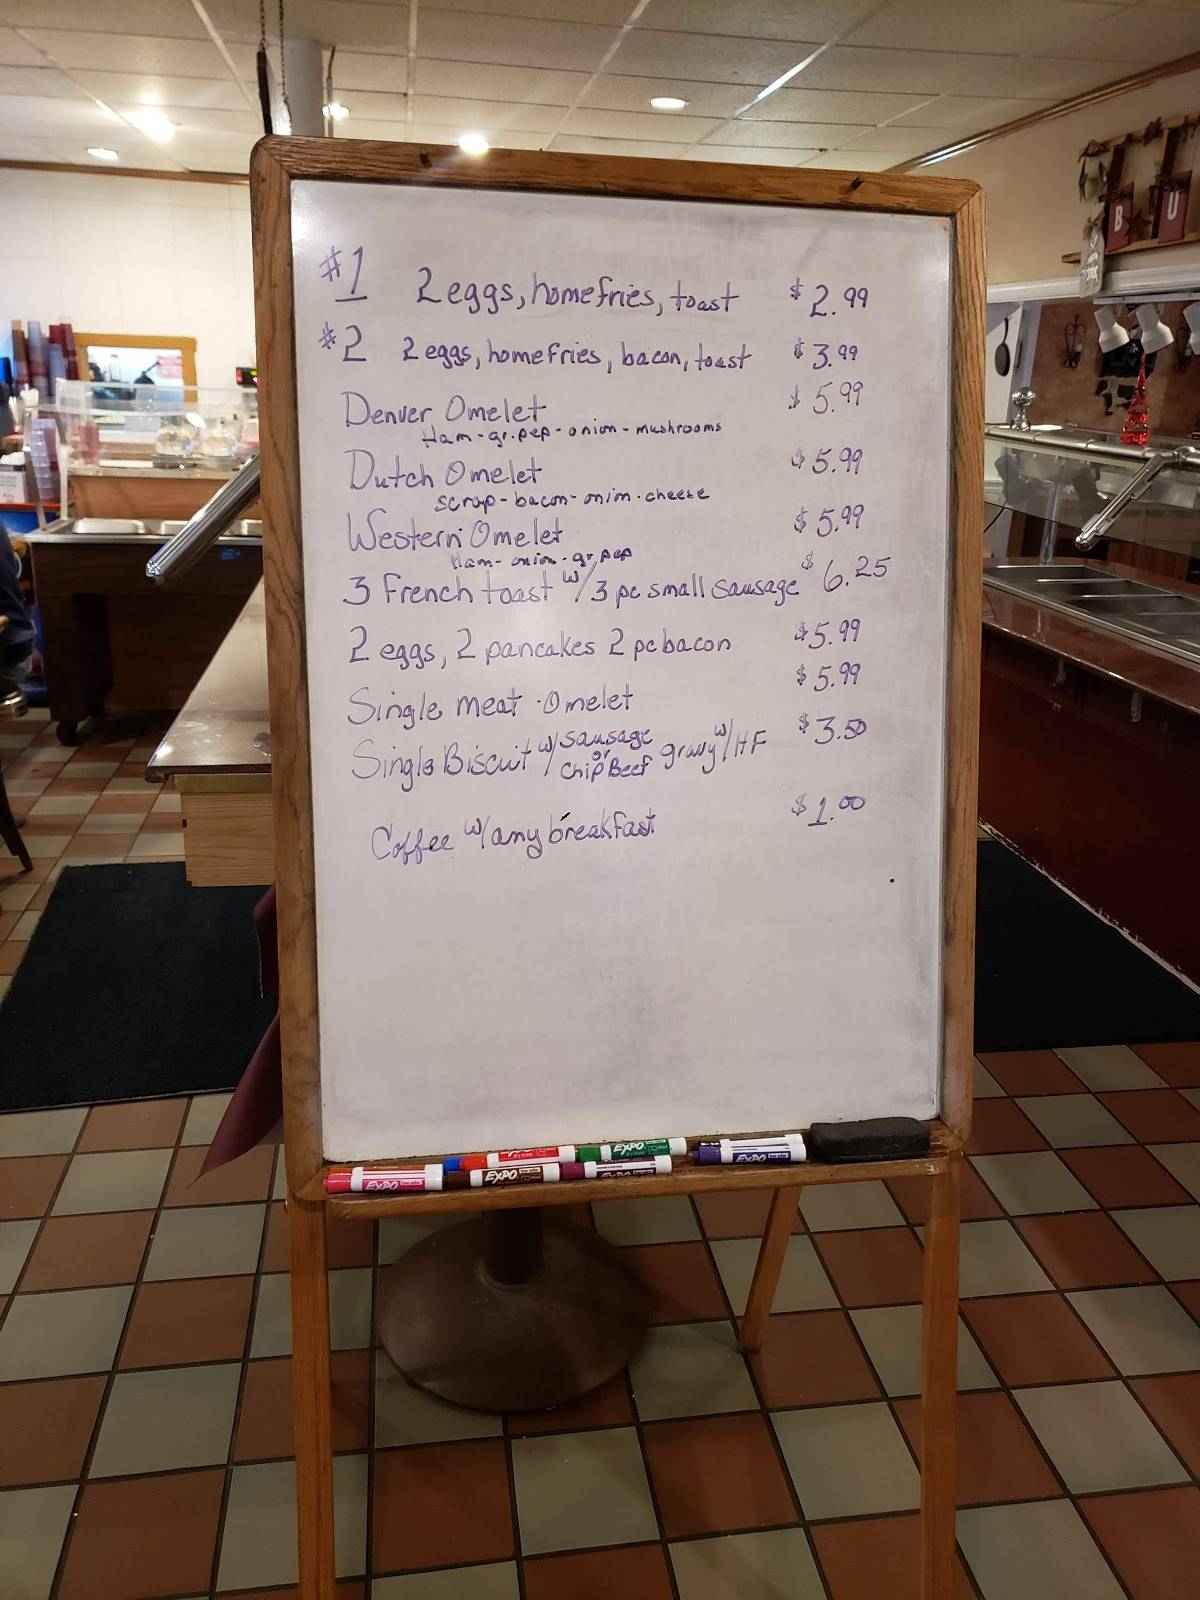 #1 2 eggs, homefries, toast $2.99
#2 2 eggs, homefries, bacon, toast $3.99
Denver Omelet $5.99
Ham - gr. pep - onion - mushrooms
Dutch Omelet $5.99
scrap - bacon - onion - cheese
Western Omelet $5.99
Ham - onion - gr pep
3 French toast w/ 3 pc small sausage $6.25
2 eggs, 2 pancakes 2 pc bacon $5.99
Single meat Omelet $5.99
Single Biscuit w/ sausage or Chip Beef gravy w/ HF $3.50
Coffee w/ any breakfast $1.00
B U
EXPO
EXPO
EXPO
EXPO